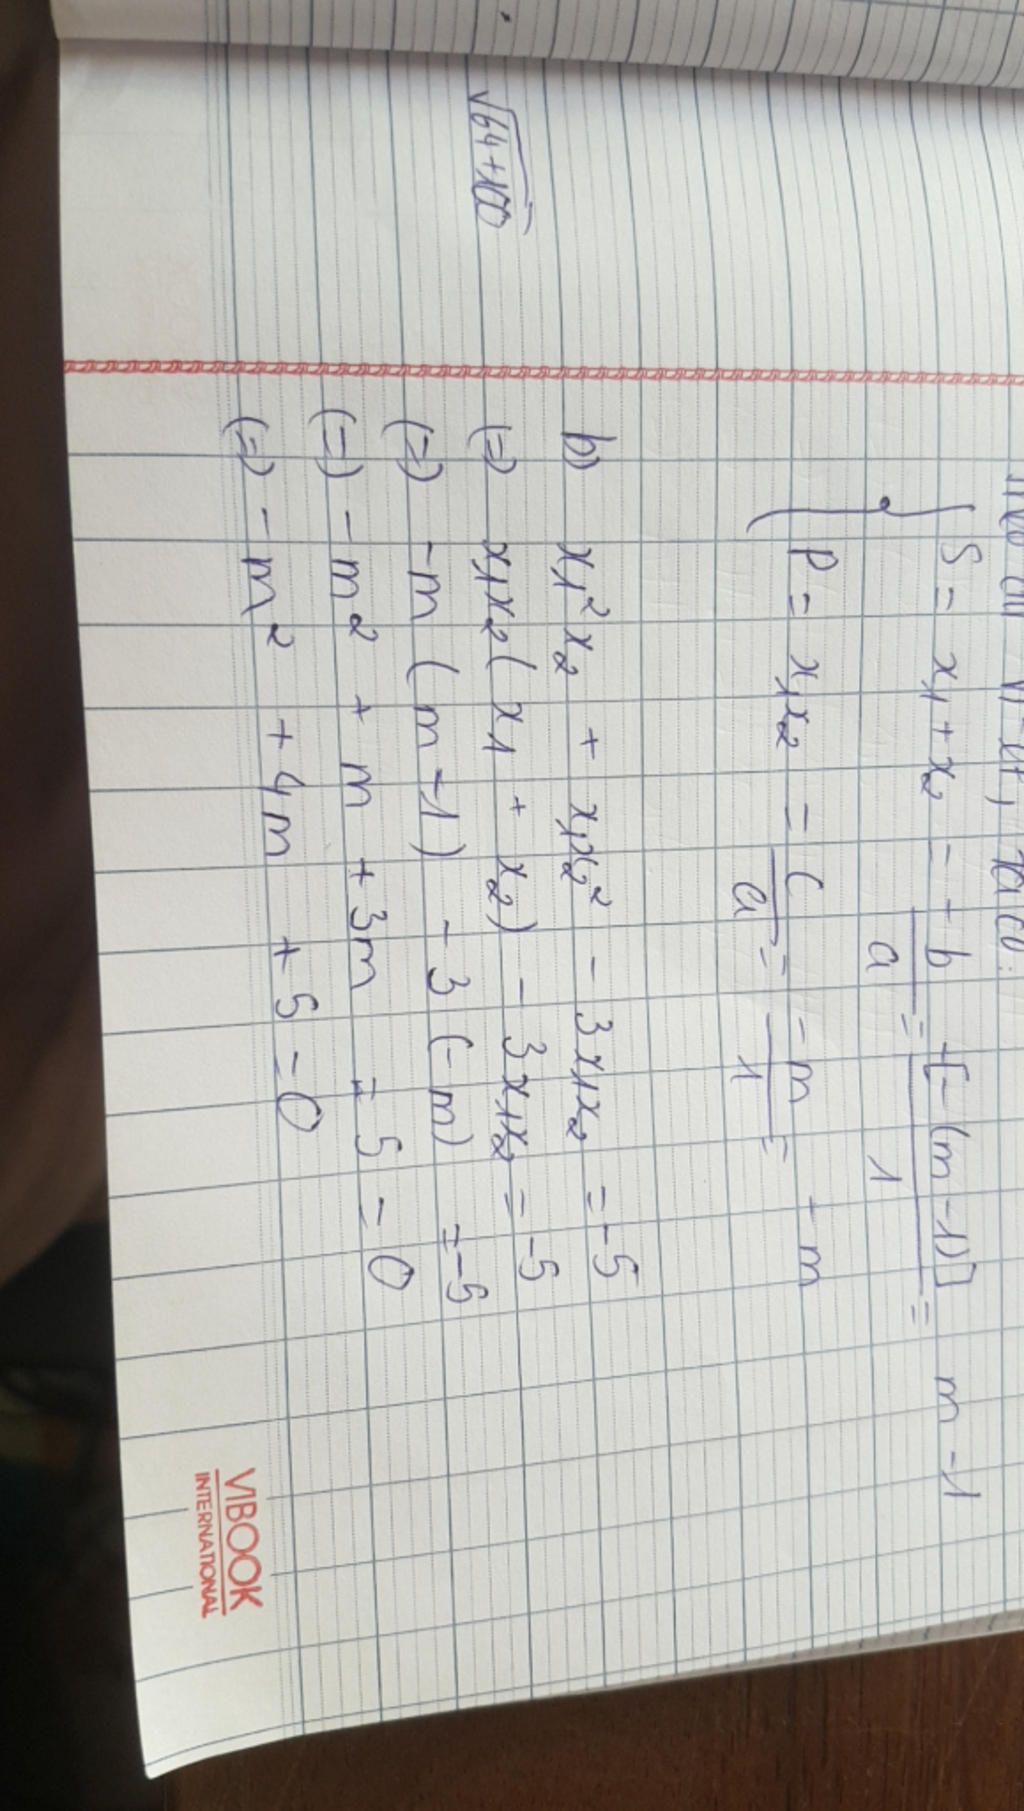 Vi-ét, ta có:
S = x1 + x2 = -b/a = -[-(m-1)]/1 = m-1
P = x1x2 = c/a = -m/1 = -m
b) x1²x2 + x1x2² - 3x1x2 = -5
(=) x1x2(x1 + x2) - 3x1x2 = -5
√64+100
(=) -m(m-1) - 3(-m) = -5
(=) -m² + m + 3m = 5 = 0
(=) -m² + 4m + 5 = 0
VIBOOK
INTERNATIONAL